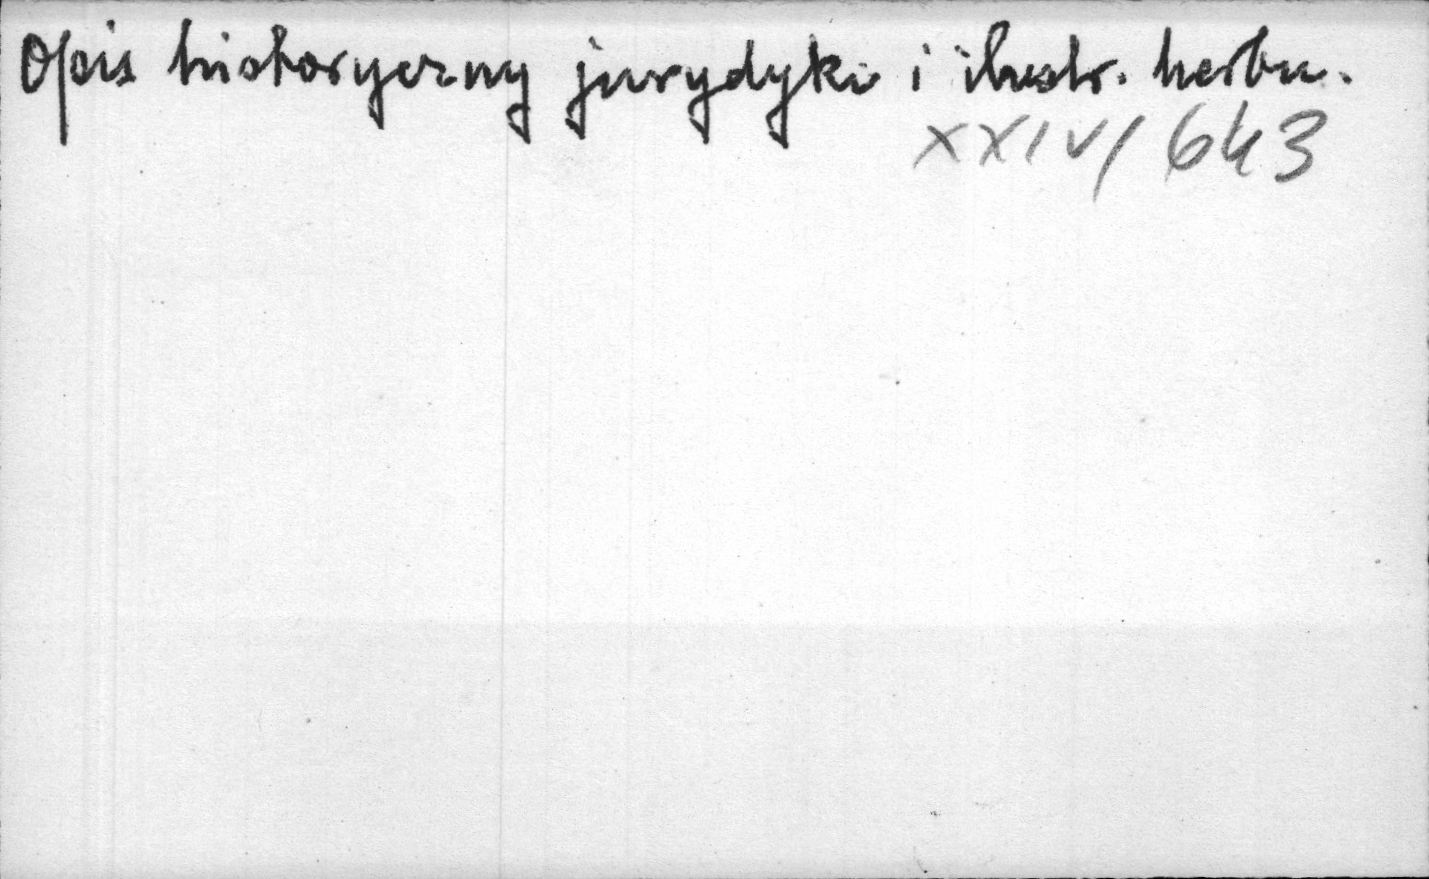 Opis historyczny jurydyki i ilustr. herbu.
XXIV/643